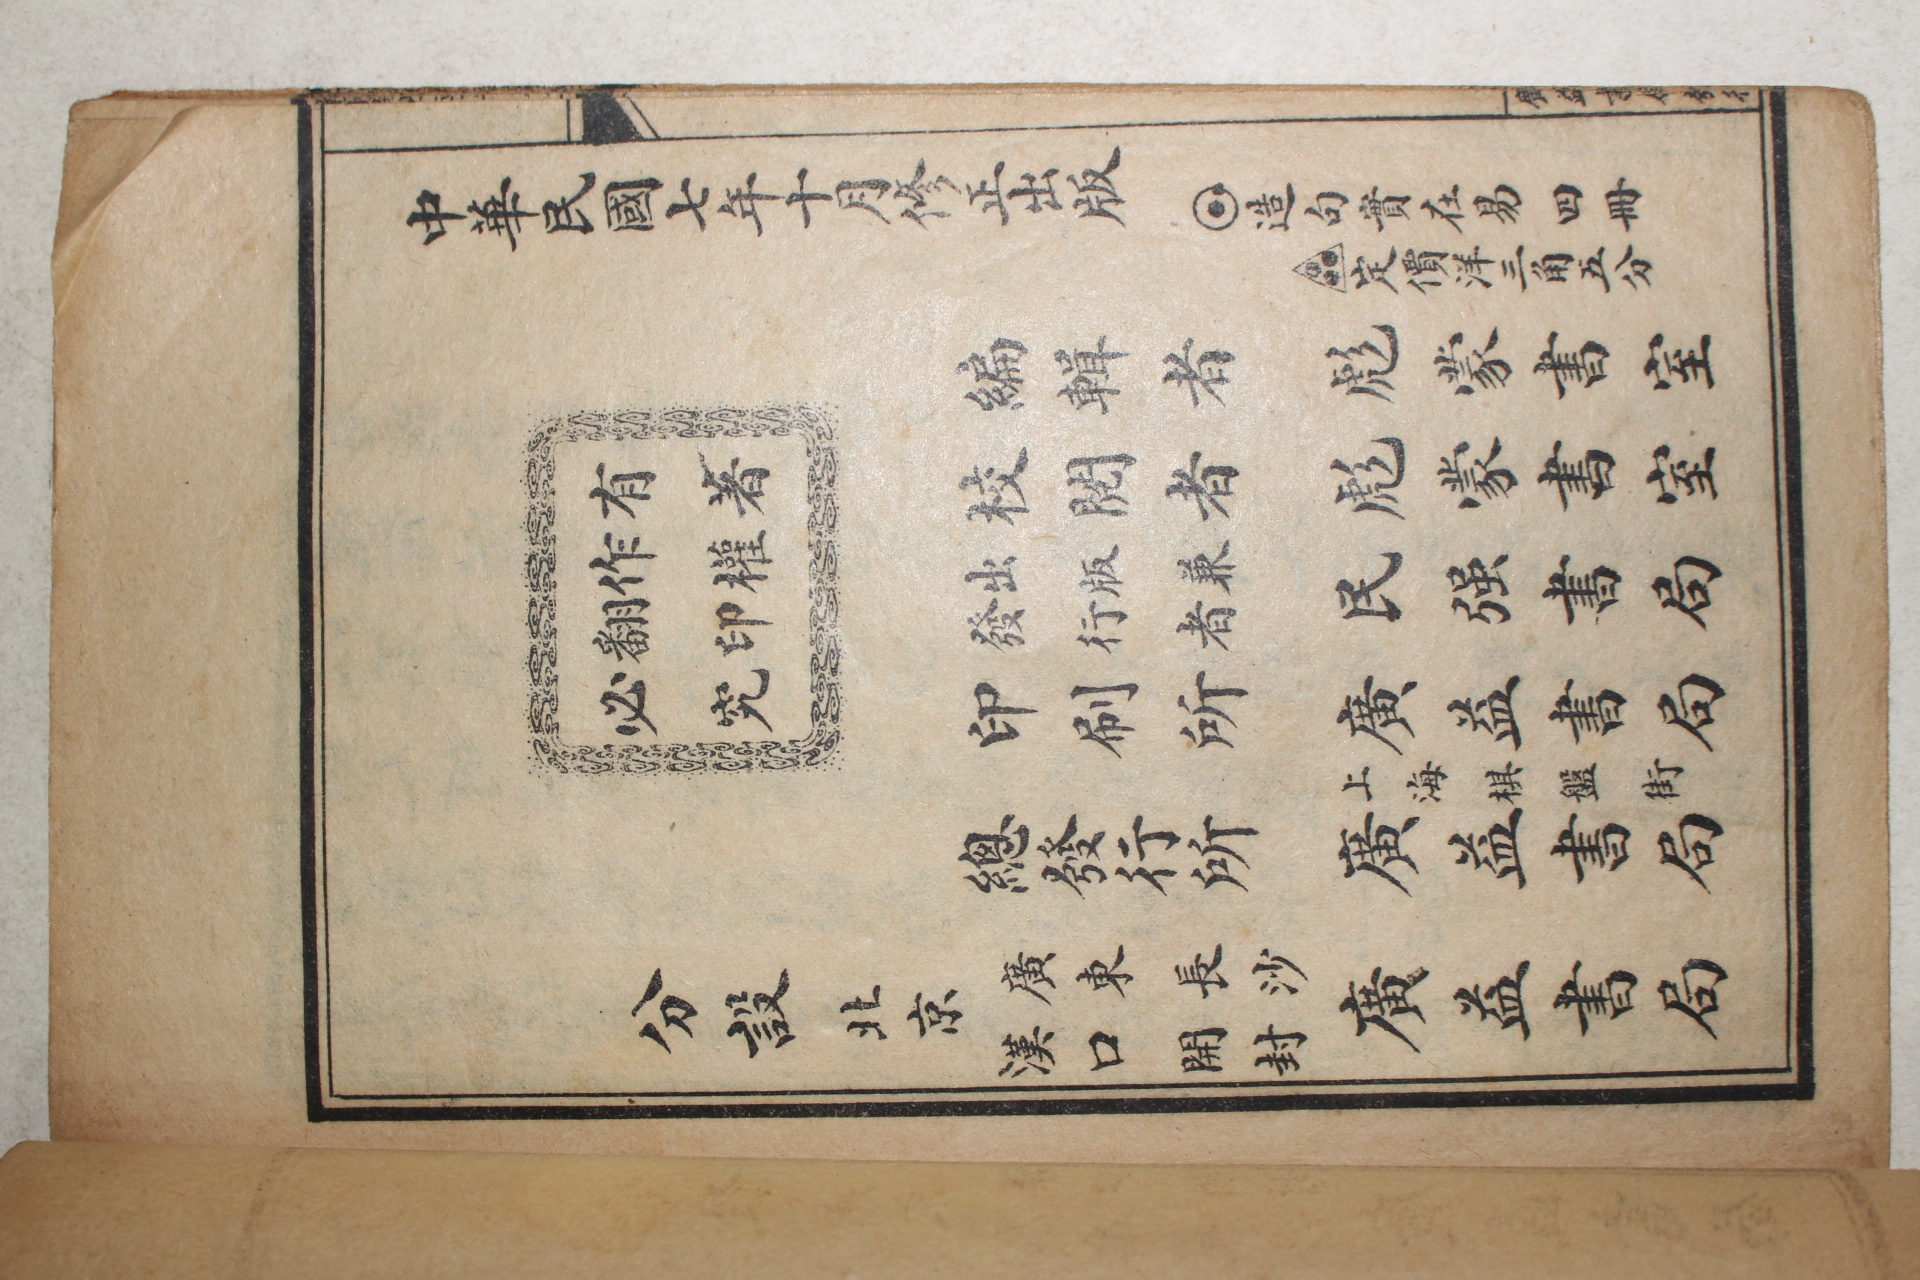 中華民國七年十月修正出版
造句實在易 四冊
定價洋三角五分
有著
作權
翻印
必究
編輯者 彪蒙書室
校閱者 彪蒙書室
出版兼
發行者 民强書局
印刷所 廣益書局
上海棋盤街
總發行所 廣益書局
分設 北京
廣東 長沙
漢口 開封
廣益書局